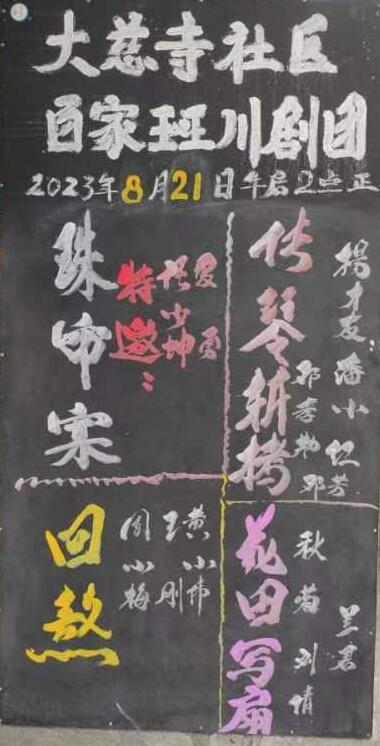 大慈寺社区
百家班川剧团
2023年8月21日午后2点正
传琴斩拷
杨才友
潘小
花田写扇
秋菊
刘倩
兰君
特邀：
勇
回熬
黄小伟
王刚
周小梅